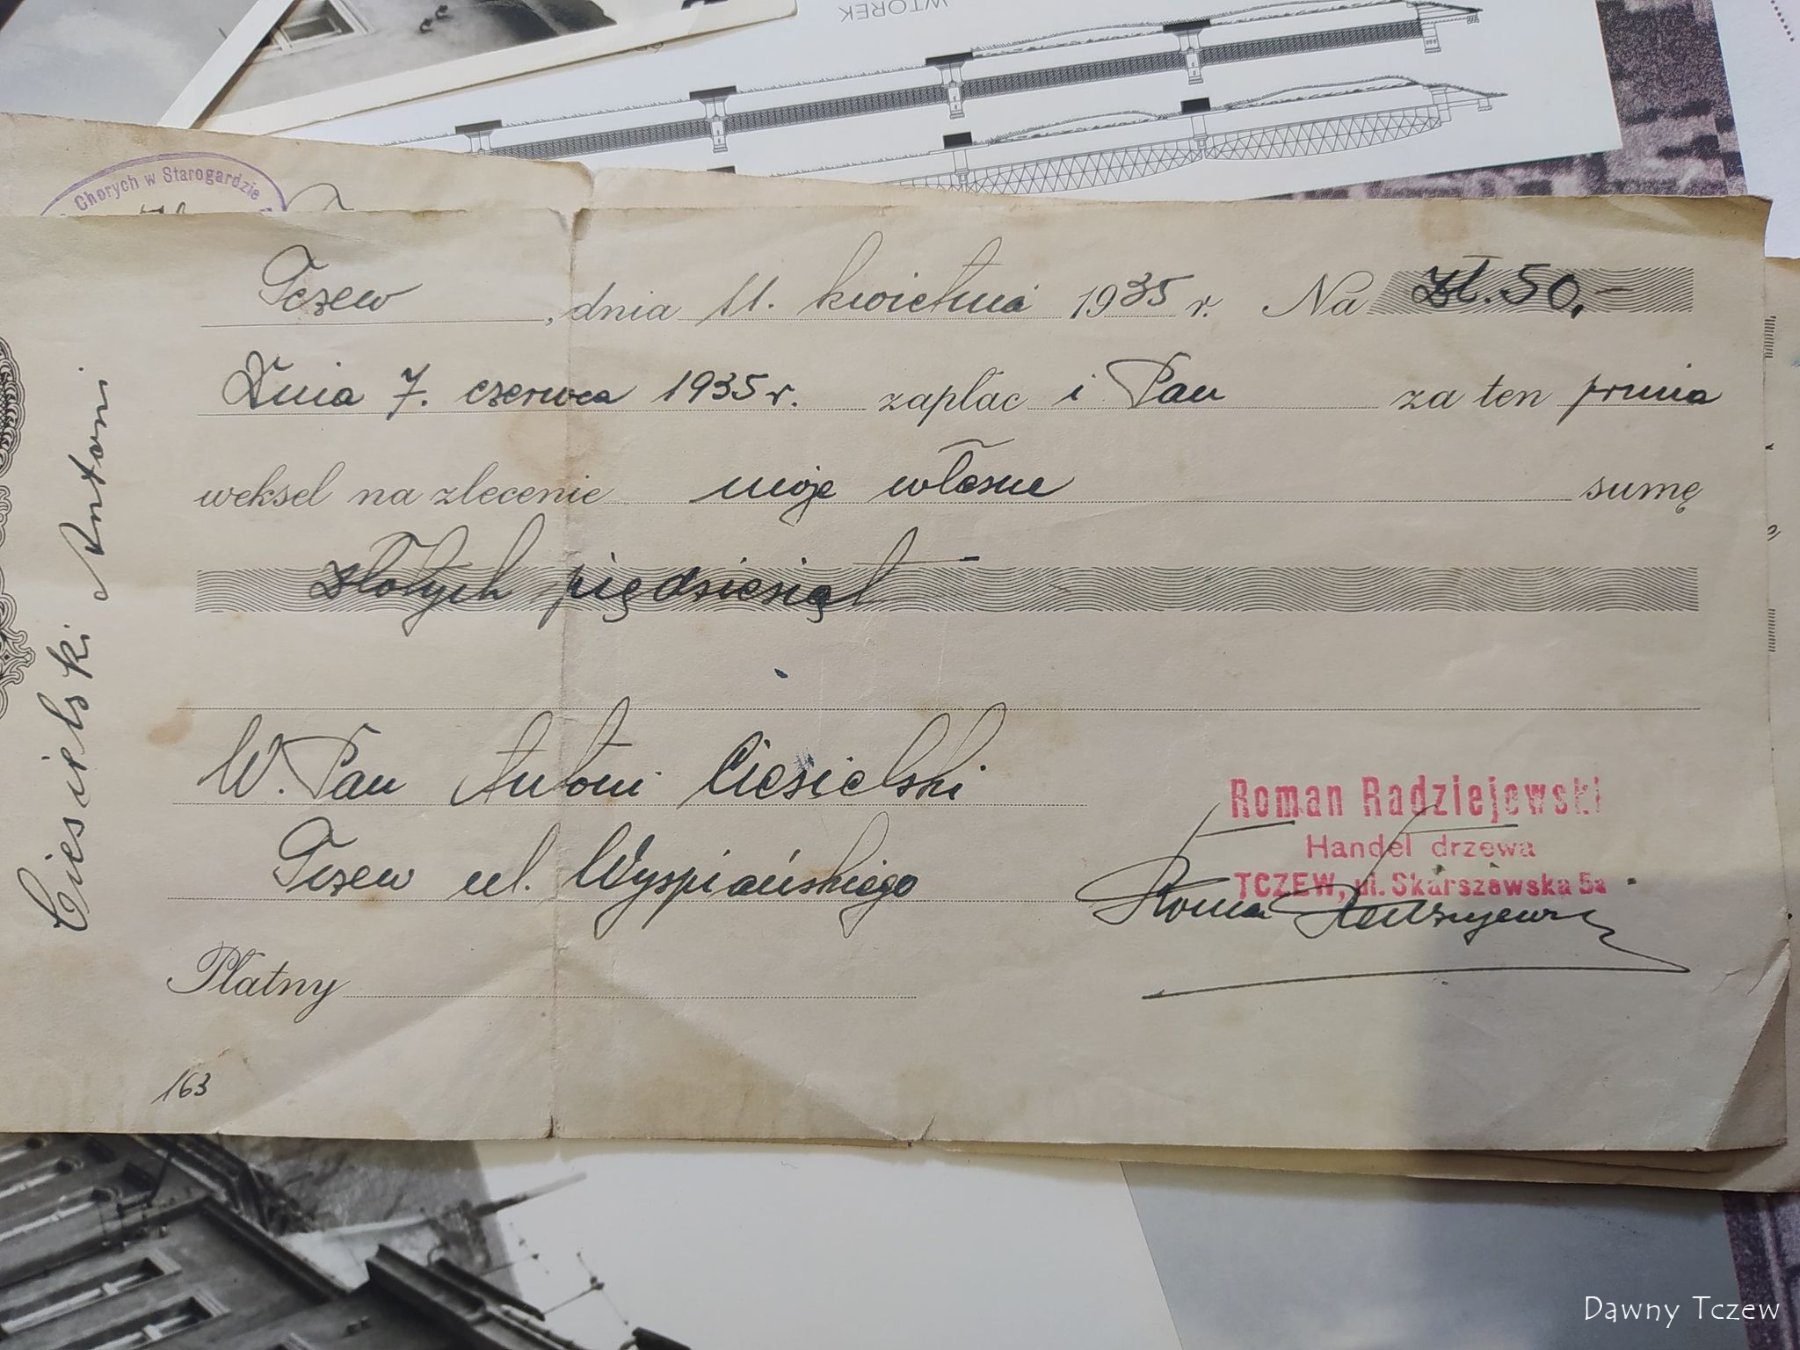 WTOREK
Chorych w Starogardzie
Tczew, dnia 11. kwietnia 1935 r. Na Zł. 50,-
Dnia 7. czerwca 1935 r. zapłaci Pan za ten prima
weksel na zlecenie moje własne sumę
złotych pięćdziesiąt
W. Pan Antoni Ciesielski
Tczew ul. Wyspiańskiego
Płatny
163
Ciesielski Antoni
Roman Radziejewski
Handel drzewa
TCZEW, ul. Skarszewska 5a
Roman Radziejewski
Dawny Tczew